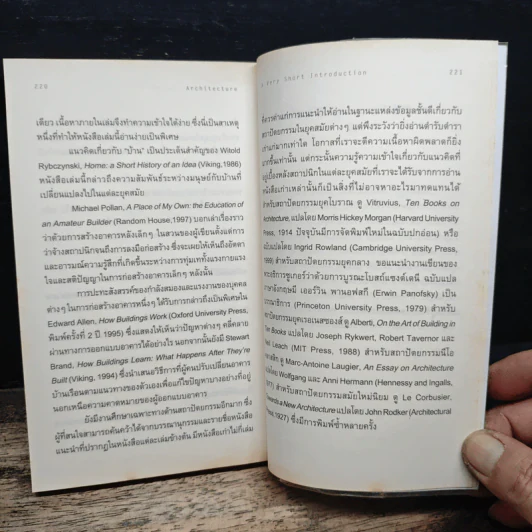 220
architecture
เดียว เนื้อหาภายในเล่มจึงทำความเข้าใจได้ง่าย ซึ่งนี่เป็นสาเหตุ
หนึ่งที่ทำให้หนังสือเล่มนี้อ่านง่ายเป็นพิเศษ
แนวคิดเกี่ยวกับ "บ้าน" เป็นประเด็นสำคัญของ Witold
Rybczynski, Home: a Short History of an Idea (Viking,1986)
หนังสือเล่มนี้กล่าวถึงความสัมพันธ์ระหว่างมนุษย์กับบ้านที่
เปลี่ยนแปลงไปในแต่ละยุคสมัย
Michael Pollan, A Place of My Own: the Education of
an Amateur Builder (Random House,1997) บอกเล่าเรื่องราว
ว่าด้วยการสร้างอาคารหลังเล็กๆ ในสวนของผู้เขียนตั้งแต่การ
ว่าจ้างสถาปนิกจนถึงการลงมือก่อสร้าง ซึ่งจะเผยให้เห็นถึงอัตตา
และอารมณ์ความรู้สึกที่เกิดขึ้นระหว่างการทุ่มเททั้งแรงกายแรง
ใจและสติปัญญาในการก่อสร้างอาคารเล็กๆ หลังนั้น
การปะทะสังสรรค์ของกำลังสมองและแรงงานของบุคคล
ต่างๆ ในการก่อสร้างอาคารหนึ่งๆ ได้รับการกล่าวถึงเป็นพิเศษใน
Edward Allen, How Buildings Work (Oxford University Press,
พิมพ์ครั้งที่ 2 ปี 1995) ซึ่งแสดงให้เห็นว่าปัญหาต่างๆ คลี่คลาย
ผ่านทางการออกแบบอาคารได้อย่างไร นอกจากนั้นยังมี Stewart
Brand, How Buildings Learn: What Happens After They're
Built (Viking, 1994) ซึ่งนำเสนอวิธีการที่ผู้คนปรับเปลี่ยนอาคาร
บ้านเรือนตามแนวทางของตัวเองเพื่อแก้ไขปัญหาบางอย่างที่อยู่
นอกเหนือความคาดหมายของผู้ออกแบบอาคาร
ยังมีงานศึกษาเฉพาะทางด้านสถาปัตยกรรมอีกมาก ซึ่ง
ผู้ที่สนใจสามารถค้นคว้าได้จากบรรณานุกรมและรายชื่อหนังสือ
แนะนำที่ปรากฏในหนังสือแต่ละเล่มข้างต้น มีหนังสือเก่าไม่กี่เล่ม
Very Short Introduction
221
ที่ควรค่าแก่การแนะนำให้อ่านในฐานะแหล่งข้อมูลชั้นดีเกี่ยวกับ
สถาปัตยกรรมในยุคสมัยต่างๆ แต่พึงระวังว่ายิ่งอ่านตำรับตำรา
เก่าแก่มากเท่าใด โอกาสที่เราจะตีความเนื้อหาผิดพลาดก็ยิ่ง
มากขึ้นเท่านั้น แต่กระนั้นความรู้ความเข้าใจเกี่ยวกับแนวคิดที่
อยู่เบื้องหลังสถาปนิกในแต่ละยุคสมัยที่เราจะได้รับจากการอ่าน
หนังสือเก่าเหล่านั้นก็เป็นสิ่งที่ไม่อาจหาอะไรมาทดแทนได้
สำหรับสถาปัตยกรรมยุคโบราณ ดู Vitruvius, Ten Books on
Architecture, แปลโดย Morris Hickey Morgan (Harvard University
Press, 1914 ปัจจุบันมีการจัดพิมพ์ใหม่ในฉบับปกอ่อน) หรือ
ฉบับแปลโดย Ingrid Rowland (Cambridge University Press,
1999) สำหรับสถาปัตยกรรมยุคกลาง ขอแนะนำงานเขียนของ
พระอธิการซูเกอร์ว่าด้วยการบูรณะโบสถ์แซงต์เดนี ฉบับแปล
ภาษาอังกฤษมี เออร์วิน พานอฟสกี (Erwin Panofsky) เป็น
บรรณาธิการ (Princeton University Press, 1979) สำหรับ
สถาปัตยกรรมยุคเรอเนสซองส์ ดู Alberti, On the Art of Building in
Ten Books แปลโดย Joseph Rykwert, Robert Tavernor และ
Neil Leach (MIT Press, 1988) สำหรับสถาปัตยกรรมนีโอ
คลาสสิก ดู Marc-Antoine Laugier, An Essay on Architecture
แปลโดย Wolfgang และ Anni Hermann (Hennessy and Ingalls,
1977) สำหรับสถาปัตยกรรมสมัยใหม่นิยม ดู Le Corbusier,
Towards a New Architecture แปลโดย John Rodker (Architectural
Press, 1927) ซึ่งมีการพิมพ์ซ้ำหลายครั้ง